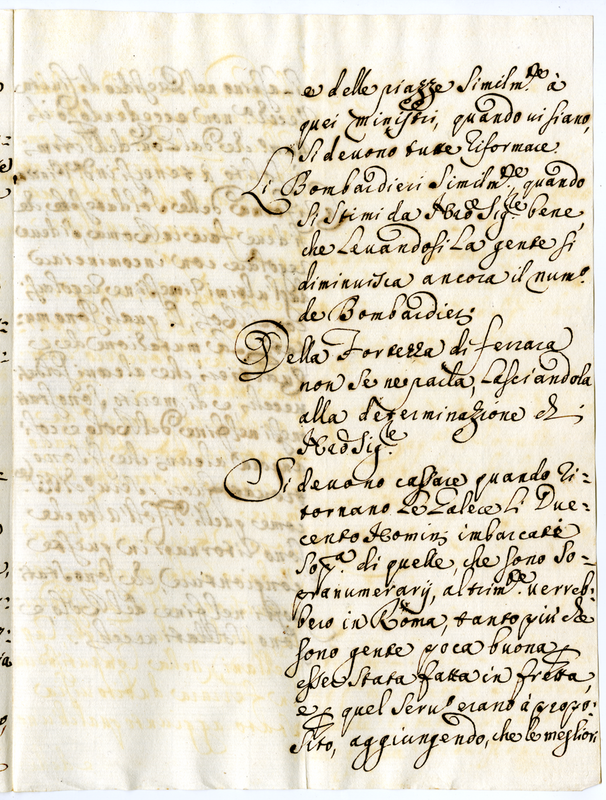 e delle piazze similm.te à
quei ministri, quando vi siano,
si devono tutte riformare.
Li Bombardieri similm.te, quando
si stimi da Nro Sig.re bene,
che levandosi la gente si
diminuisca ancora il num.o
de Bombardieri
Della Fortezza di Ferrara
non se ne parla, lasciandola
alla determinazione di
Nro Sig.re
Si devono cassare quando ri=
tornano le Galere li Due=
cento Homini imbarcati
sop.a di quelle, che sono so=
pranumerarij, altrim.te verreb=
bero in Roma, tanto più che
sono gente poca buona p
esser stata fatta in fretta,
e p quel serv.o erano à propo=
sito, aggiungendo, che le megliori